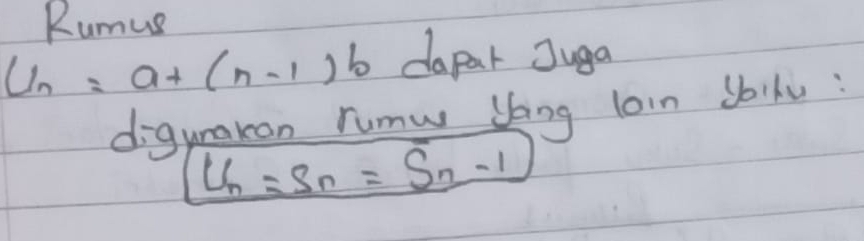 Rumus
Un = a + (n-1)b dapat Juga
digunakan rumus yang lain yaitu :
Un = Sn = Sn - 1